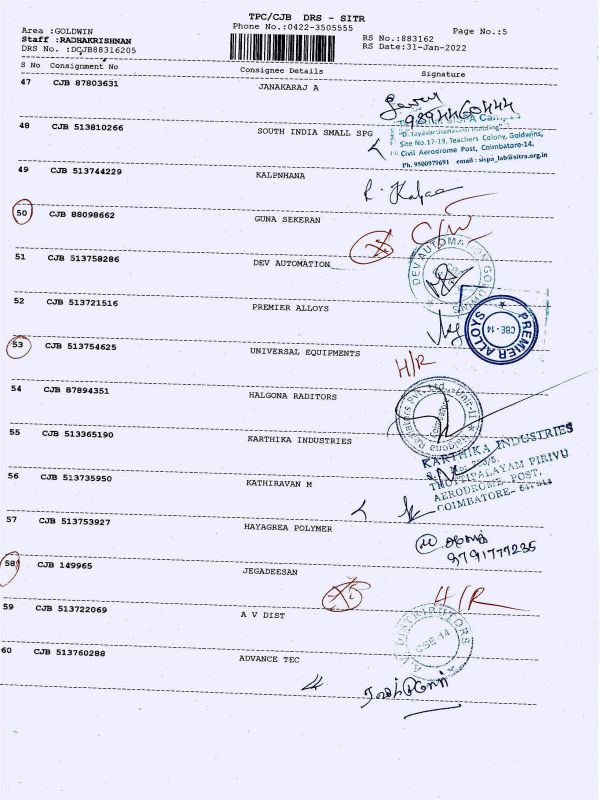 TPC/CJB DRS - SITR
Area :GOLDWIN
Phone No.:0422-3505555
Page No.:5
Staff :RADHAKRISHNAN
RS No.:883162
DRS No. :DCJB88316205
RS Date:31-Jan-2022
S No Consignment No Consignee Details Signature
47 CJB 87803631 JANAKARAJ A
9894460444
48 CJB 513810266 SOUTH INDIA SMALL SPG
"D. Jayavarthanavelu Building"
Site No.17-19, Teachers Colony, Goldwins,
Civil Aerodrome Post, Coimbatore-14.
Ph. 9500979691 email : sispa_lab@sitra.org.in
49 CJB 513744229 KALPNHANA
R. Kalpa
50 CJB 88098662 GUNA SEKERAN
C/W
51 CJB 513758286 DEV AUTOMATION
DEV AUTOMATION
52 CJB 513721516 PREMIER ALLOYS
PREMIER ALLOYS
CBE-14
53 CJB 513754625 UNIVERSAL EQUIPMENTS
H/R
54 CJB 87894351 HALGONA RADITORS
55 CJB 513365190 KARTHIKA INDUSTRIES
KARTHIKA INDUSTRIES
THOTTIPALAYAM PIRIVU
AERODROME POST,
COIMBATORE-
56 CJB 513735950 KATHIRAVAN M
57 CJB 513753927 HAYAGREA POLYMER
9791777235
58 CJB 149965 JEGADEESAN
H/R
59 CJB 513722069 A V DIST
A.V. DISTRIBUTORS
CBE-14
60 CJB 513760288 ADVANCE TEC